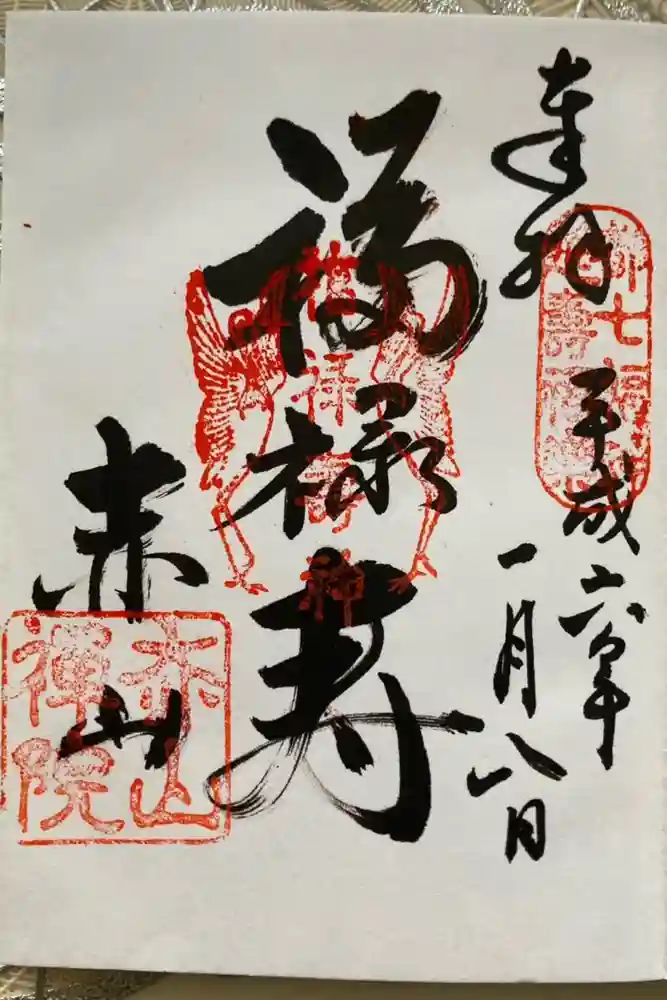 奉拝
平成六年
一月八日
福禄寿
福禄寿神
赤山
赤山
禪院